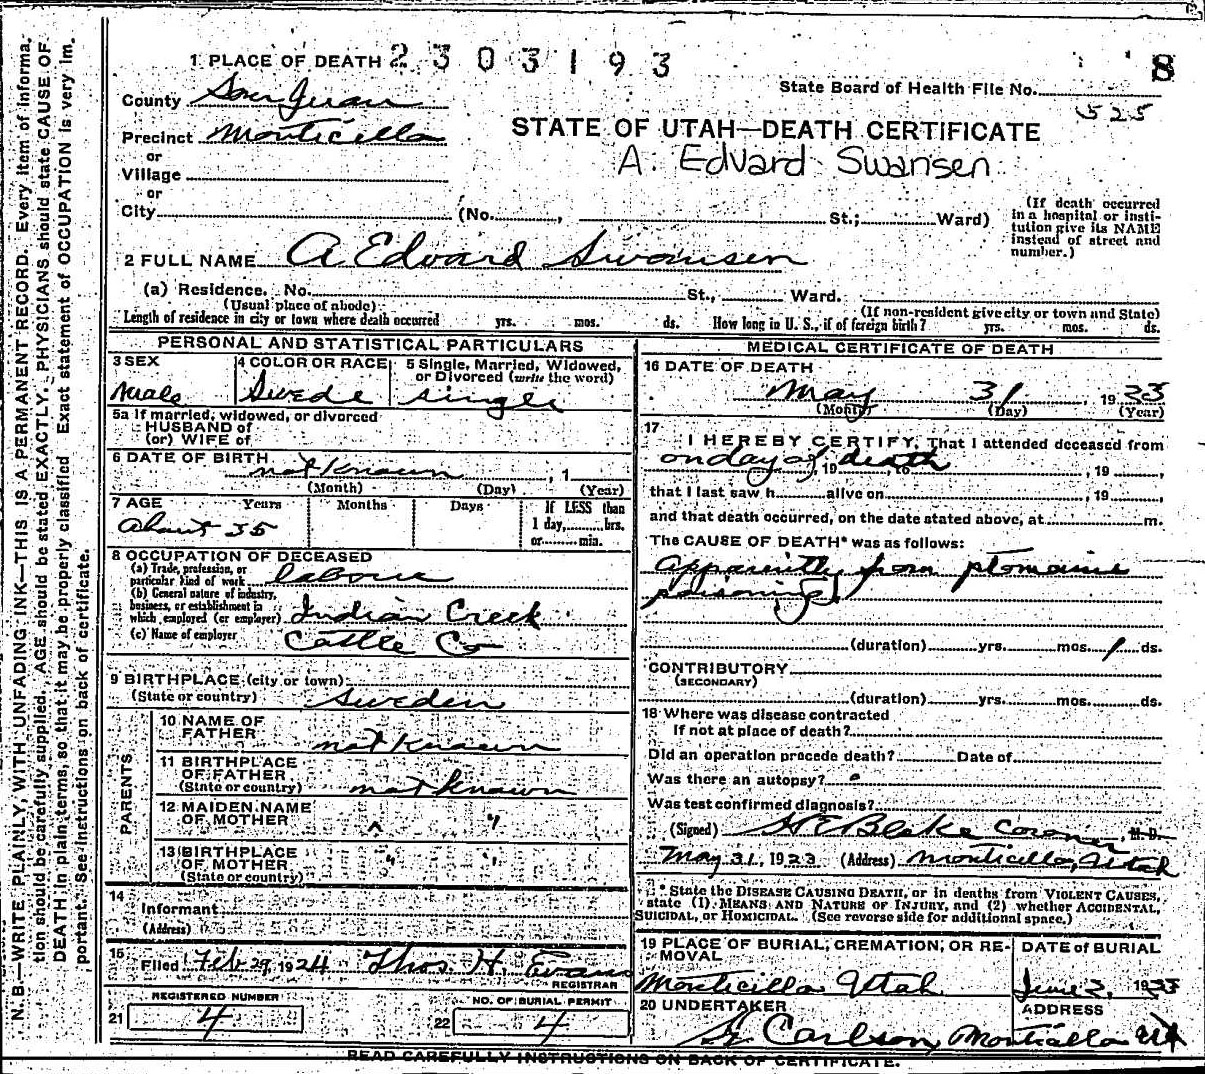 1 PLACE OF DEATH 2303193
8
State Board of Health File No.
525
County San Juan
Precinct Monticello
or
Village
or
City (No. , St.; Ward)
STATE OF UTAH—DEATH CERTIFICATE
A. Edvard Swansen
(If death occurred in a hospital or institution give its NAME instead of street and number.)
2 FULL NAME A Edvard Swansen
(a) Residence. No. St., Ward.
(Usual place of abode) (If non-resident give city or town and State)
Length of residence in city or town where death occurred yrs. mos. ds. How long in U. S., if of foreign birth? yrs. mos. ds.
PERSONAL AND STATISTICAL PARTICULARS
3 SEX
Male
4 COLOR OR RACE
Swede
5 Single, Married, Widowed, or Divorced (write the word)
single
5a If married, widowed, or divorced
HUSBAND of
(or) WIFE of
6 DATE OF BIRTH
not known , 1
(Month) (Day) (Year)
7 AGE Years Months Days If LESS than
1 day, hrs.
or min.
About 35
8 OCCUPATION OF DECEASED
(a) Trade, profession, or
particular kind of work
(b) General nature of industry,
business, or establishment in
which employed (or employer) Indian Creek
(c) Name of employer Cattle Co
9 BIRTHPLACE (city or town)
(State or country) Sweden
PARENTS
10 NAME OF
FATHER not known
11 BIRTHPLACE
OF FATHER
(State or country) not known
12 MAIDEN NAME
OF MOTHER " "
13 BIRTHPLACE
OF MOTHER " "
(State or country)
14
Informant
(Address)
15
Filed Feb 29, 1924 Thos. H. Evans
REGISTRAR
REGISTERED NUMBER
21 4
NO. OF BURIAL PERMIT
22 4
MEDICAL CERTIFICATE OF DEATH
16 DATE OF DEATH
May 31, 1923
(Month) (Day) (Year)
17
I HEREBY CERTIFY, That I attended deceased from
on day of death, 19 to , 19 ,
that I last saw h alive on , 19 ,
and that death occurred, on the date stated above, at m.
The CAUSE OF DEATH* was as follows:
apparently from ptomaine
poisoning
(duration) yrs. mos. 1 ds.
CONTRIBUTORY
(SECONDARY)
(duration) yrs. mos. ds.
18 Where was disease contracted
If not at place of death?
Did an operation precede death? Date of
Was there an autopsy?
Was test confirmed diagnosis?
(Signed) H E Blake Coroner, M. D.
May 31, 1923 (Address) Monticello, Utah
* State the DISEASE CAUSING DEATH, or in deaths from VIOLENT CAUSES,
state (1) MEANS AND NATURE OF INJURY, and (2) whether ACCIDENTAL,
SUICIDAL, or HOMICIDAL. (See reverse side for additional space.)
19 PLACE OF BURIAL, CREMATION, OR REMOVAL
Monticello Utah
DATE of BURIAL
June 2, 1923
20 UNDERTAKER
Carlson,
ADDRESS
Monticello Ut
READ CAREFULLY INSTRUCTIONS ON BACK OF CERTIFICATE.
N. B.—WRITE PLAINLY, WITH UNFADING INK—THIS IS A PERMANENT RECORD. Every item of informa-
tion should be carefully supplied. AGE should be stated EXACTLY. PHYSICIANS should state CAUSE OF
DEATH in plain terms, so that it may be properly classified. Exact statement of OCCUPATION is very im-
portant. See instructions on back of certificate.